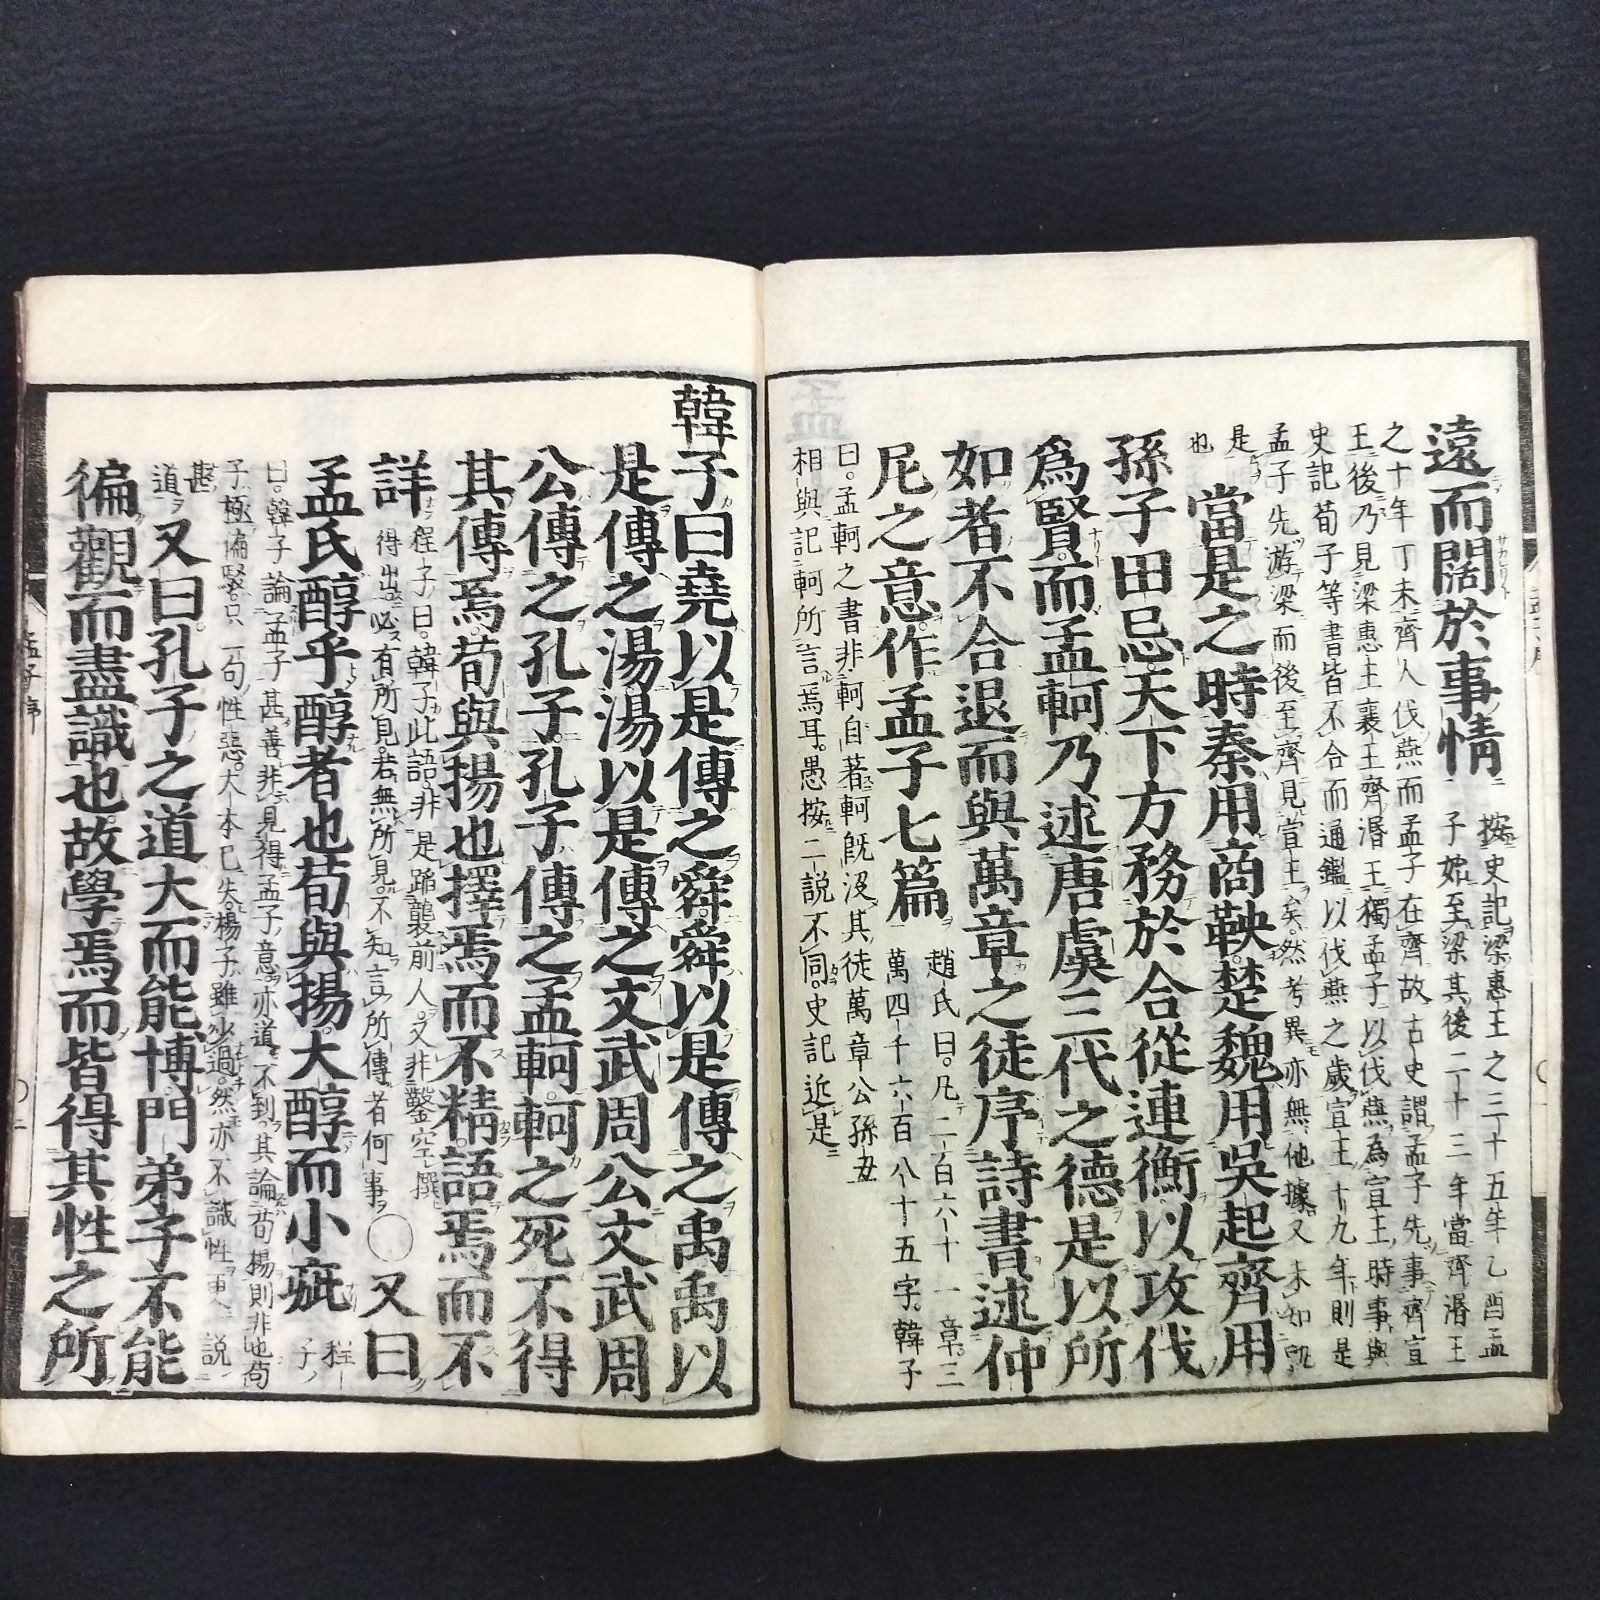 遠而闊於事情
按史記梁惠王之三十五年乙酉孟
子始至梁其後二十三年當齊湣王
之十年丁未齊人伐燕而孟子在齊故古史謂孟子先事齊宣
王後乃見梁惠王襄王齊湣王獨孟子以伐燕為宣王時事與
史記荀子等書皆不合而通鑑以伐燕之歲宣王十九年則是
孟子先游梁而後至齊見宣王矣然考異亦無他據又未知孰
是
也
當是之時秦用商鞅楚魏用吳起齊用
孫子田忌天下方務於合從連衡以攻伐
爲賢而孟軻乃述唐虞三代之德是以所
如者不合退而與萬章之徒序詩書述仲
尼之意作孟子七篇
趙氏曰凡二百六十一章三
萬四千六百八十五字韓子
曰孟軻之書非軻自著軻旣沒其徒萬章公孫丑
相與記軻所言焉耳愚按二說不同史記近是
韓子曰堯以是傳之舜舜以是傳之禹禹以
是傳之湯湯以是傳之文武周公文武周
公傳之孔子孔子傳之孟軻軻之死不得
其傳焉荀與揚也擇焉而不精語焉而不
詳
程子曰韓子此語非是蹈襲前人又非鑿空撰
得出必有所見若無所見不知言所傳者何事
○又曰
孟氏醇乎醇者也荀與揚大醇而小疵
程
子
曰韓子論孟子甚善非見得孟子意亦道不到其論荀揚則非也荀
子極偏駁只一句性惡大本已失楊子雖少過然亦不識性更說
甚
道
又曰孔子之道大而能博門弟子不能
徧觀而盡識也故學焉而皆得其性之所
孟子序